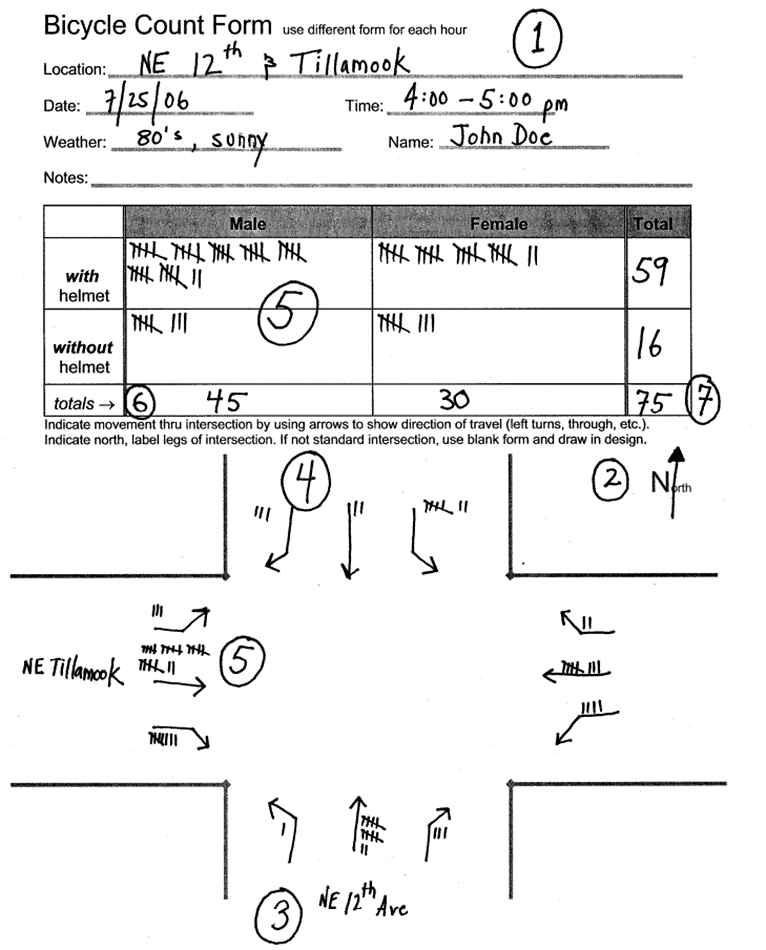 Bicycle Count Form use different form for each hour
1
Location: NE 12th & Tillamook
Date: 7/25/06 Time: 4:00 - 5:00 pm
Weather: 80's, sunny Name: John Doe
Notes:
Male Female Total
with helmet 59
5
without helmet 16
totals → 6 45 30 75 7
Indicate movement thru intersection by using arrows to show direction of travel (left turns, through, etc.).
Indicate north, label legs of intersection. If not standard intersection, use blank form and draw in design.
4
2 North
NE Tillamook 5
3 NE 12th Ave